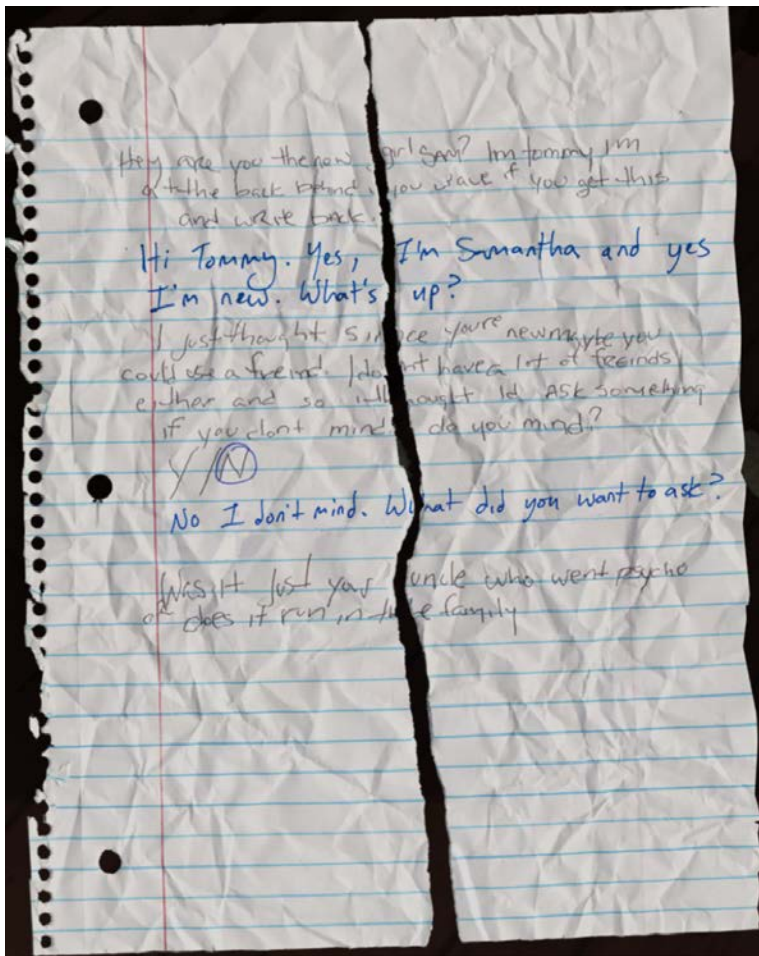 Hey are you the new girl Sam? Im tommy I'm
at the back behind you wave if you get this
and write back.
Hi Tommy. Yes, I'm Samantha and yes
I'm new. What's up?
I just thought since youre new maybe you
could use a freind. I do nt have a lot of freinds
either and so i thought Id ASk something
if you dont mind. do you mind?
Y/N
No I don't mind. What did you want to ask?
Was it just your uncle who went psycho
or does it run in the family